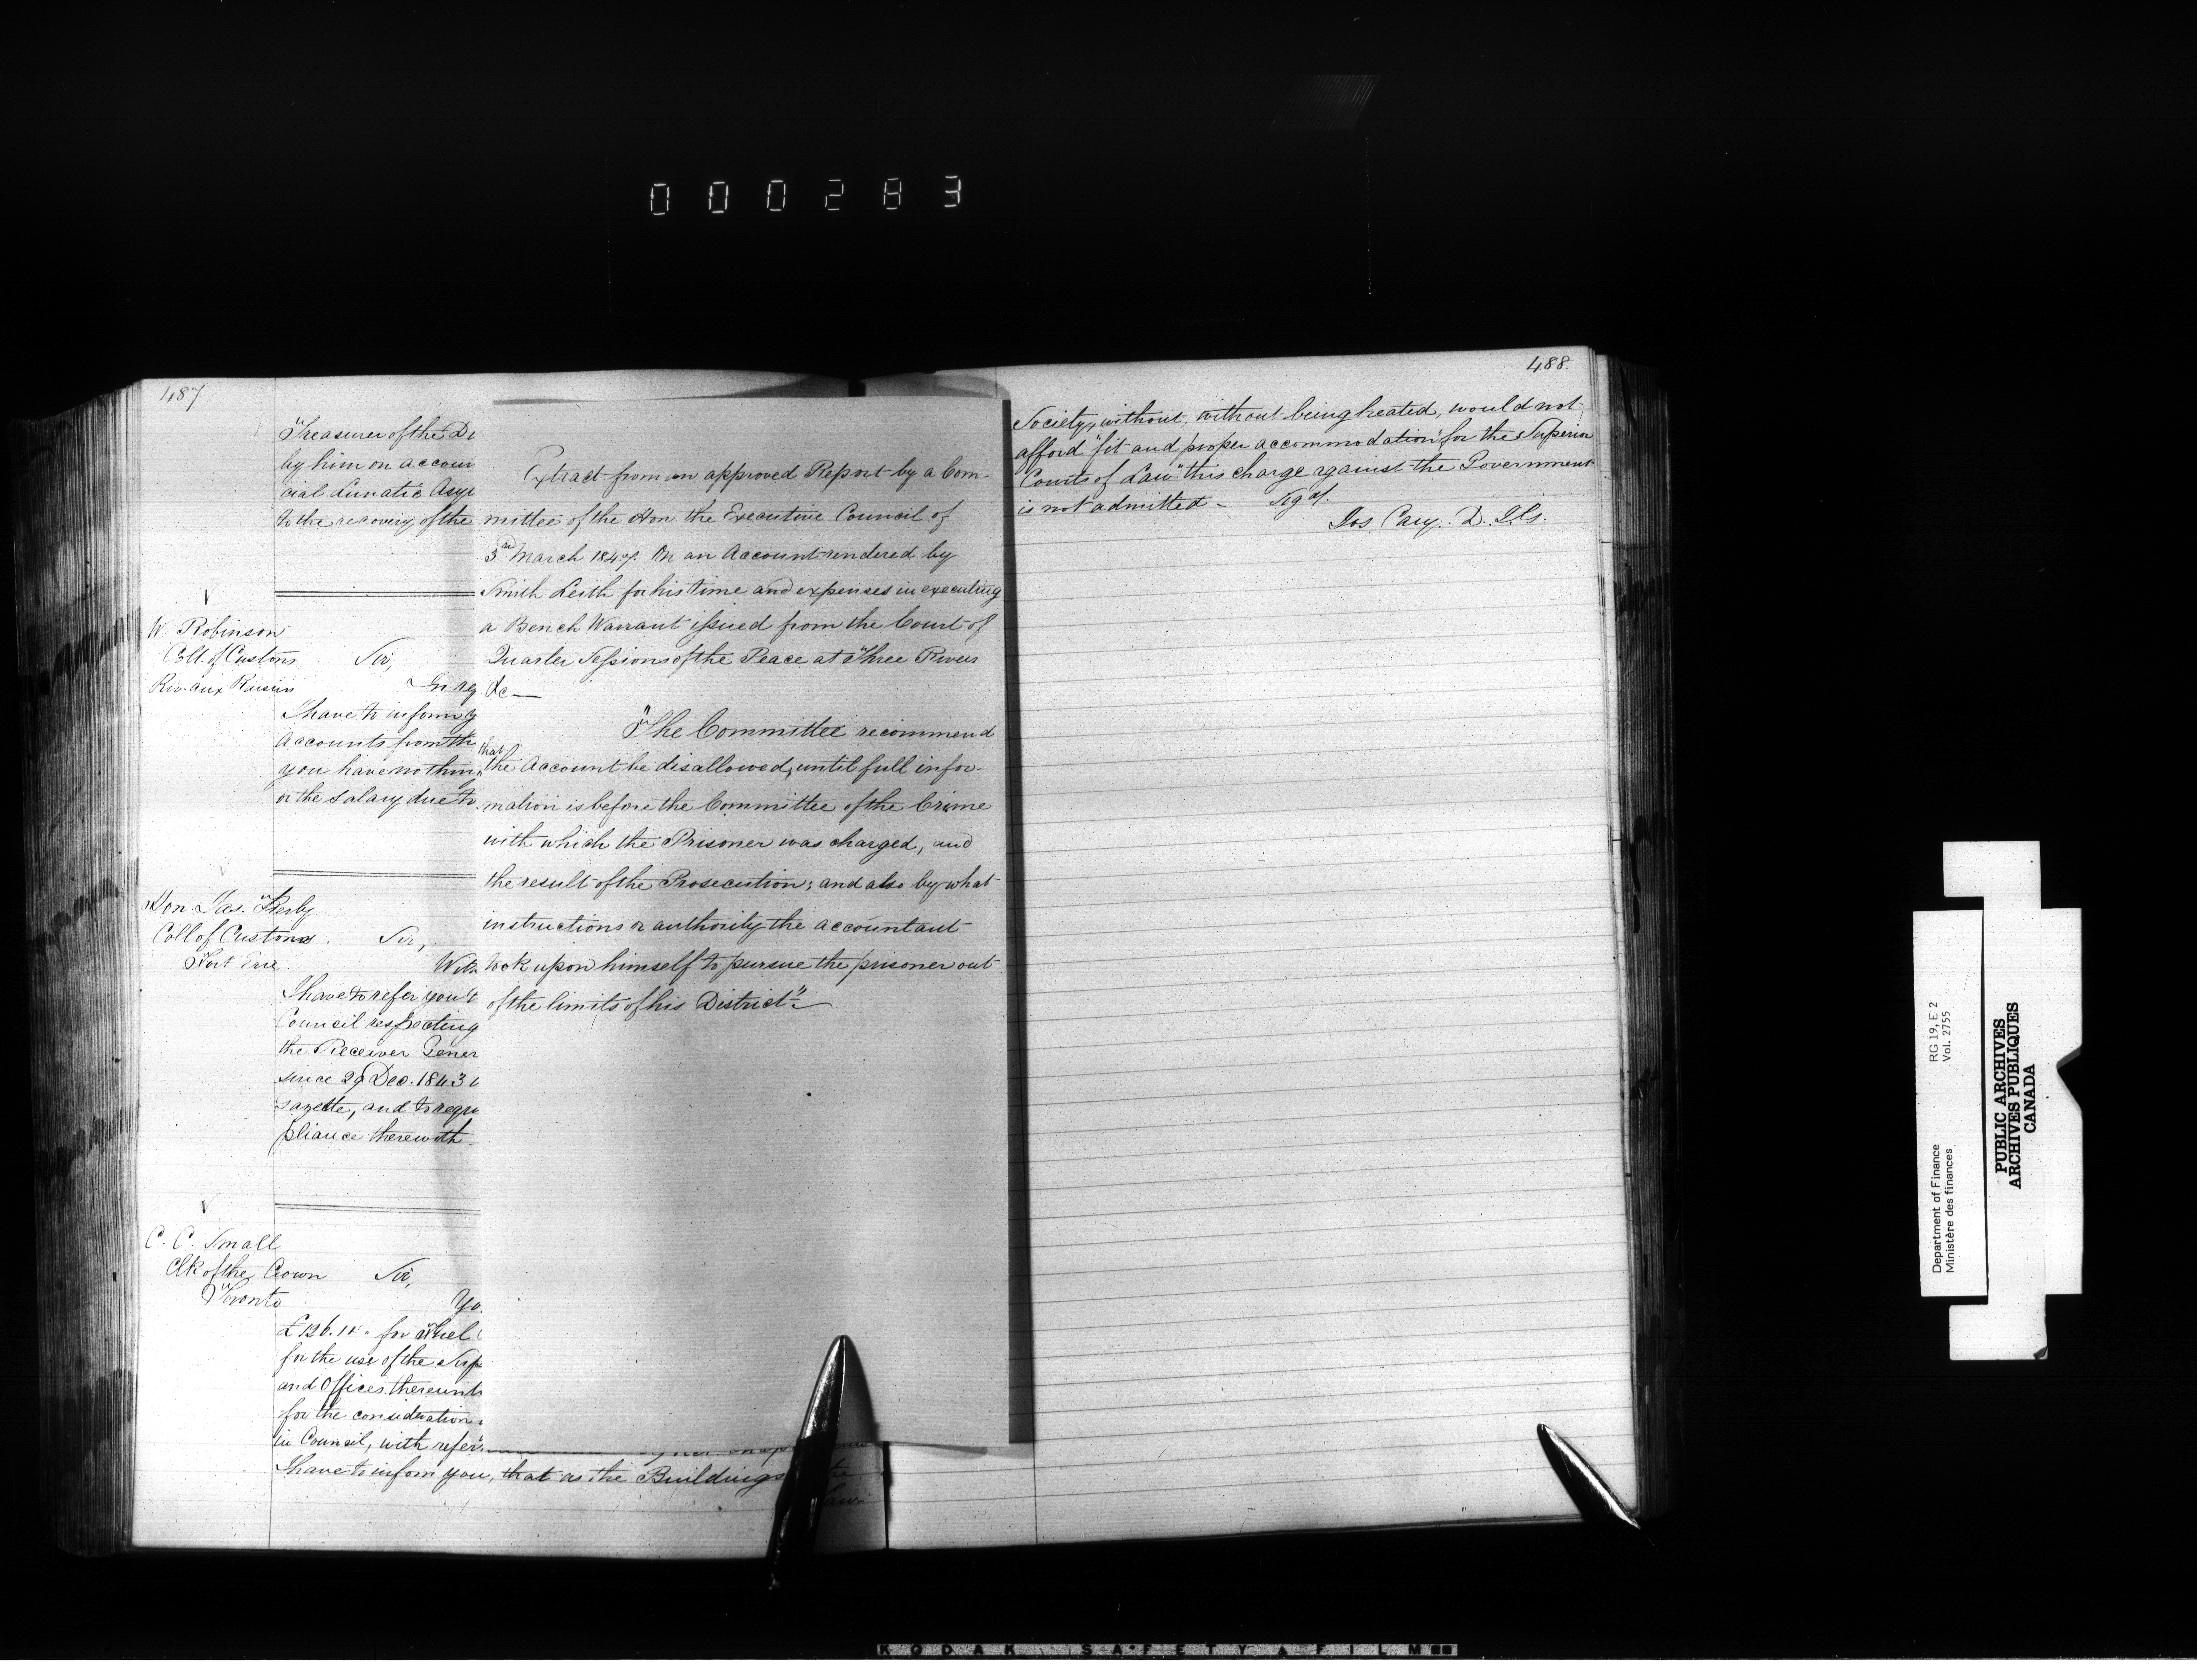 000283
487
Treasurer of the Di
by him on accoun
cial Lunatic Asyl
to the recovery of the
W. Robinson
Coll. of Customs
Riv. aux Raisin
Sir,
In reg
I have to inform y
accounts from th
you have nothin
or the salary due to
Hon. Jas. Kerby
Coll of Customs
Fort Erie.
Sir,
With
I have to refer you t
Council respecting
the Receiver Gener
since 29 Dec. 1843
Gazette, and to requ
pliance therewith
C. C. Small
Clk of the Crown
Toronto
Sir,
Yo
for Fuel
for the use of the Supe
and Offices thereunto
for the consideration
in Council, with refer
I have to inform you, that as the Buildings
Extract from an approved Report by a Com-
mittee of the Hon. the Executive Council of
3rd March 1847. On an Account rendered by
Smith Leith for his time and expenses in executing
a Bench Warrant issued from the Court of
Quarter Sessions of the Peace at Three Rivers
&c —
"The Committee recommend
that the Account be disallowed, until full infor-
mation is before the Committee of the Crime
with which the Prisoner was charged, and
the result of the Prosecution; and also by what
instructions or authority the accountant
took upon himself to pursue the prisoner out
of the limits of his District"—
488
Society, without, without being heated, would not
afford "fit and proper accommodation for the Superior
Courts of Law" this charge against the Government
is not admitted -
Sigd.
Jos Cary. D. I. G.
Department of Finance
Ministère des finances
RG 19, E 2
Vol. 2755
PUBLIC ARCHIVES
ARCHIVES PUBLIQUES
CANADA
KODAK SAFETY FILM